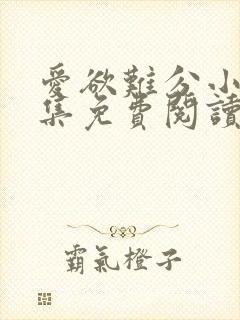 愛欲難分小
集免費閱讀
霸氣橙子